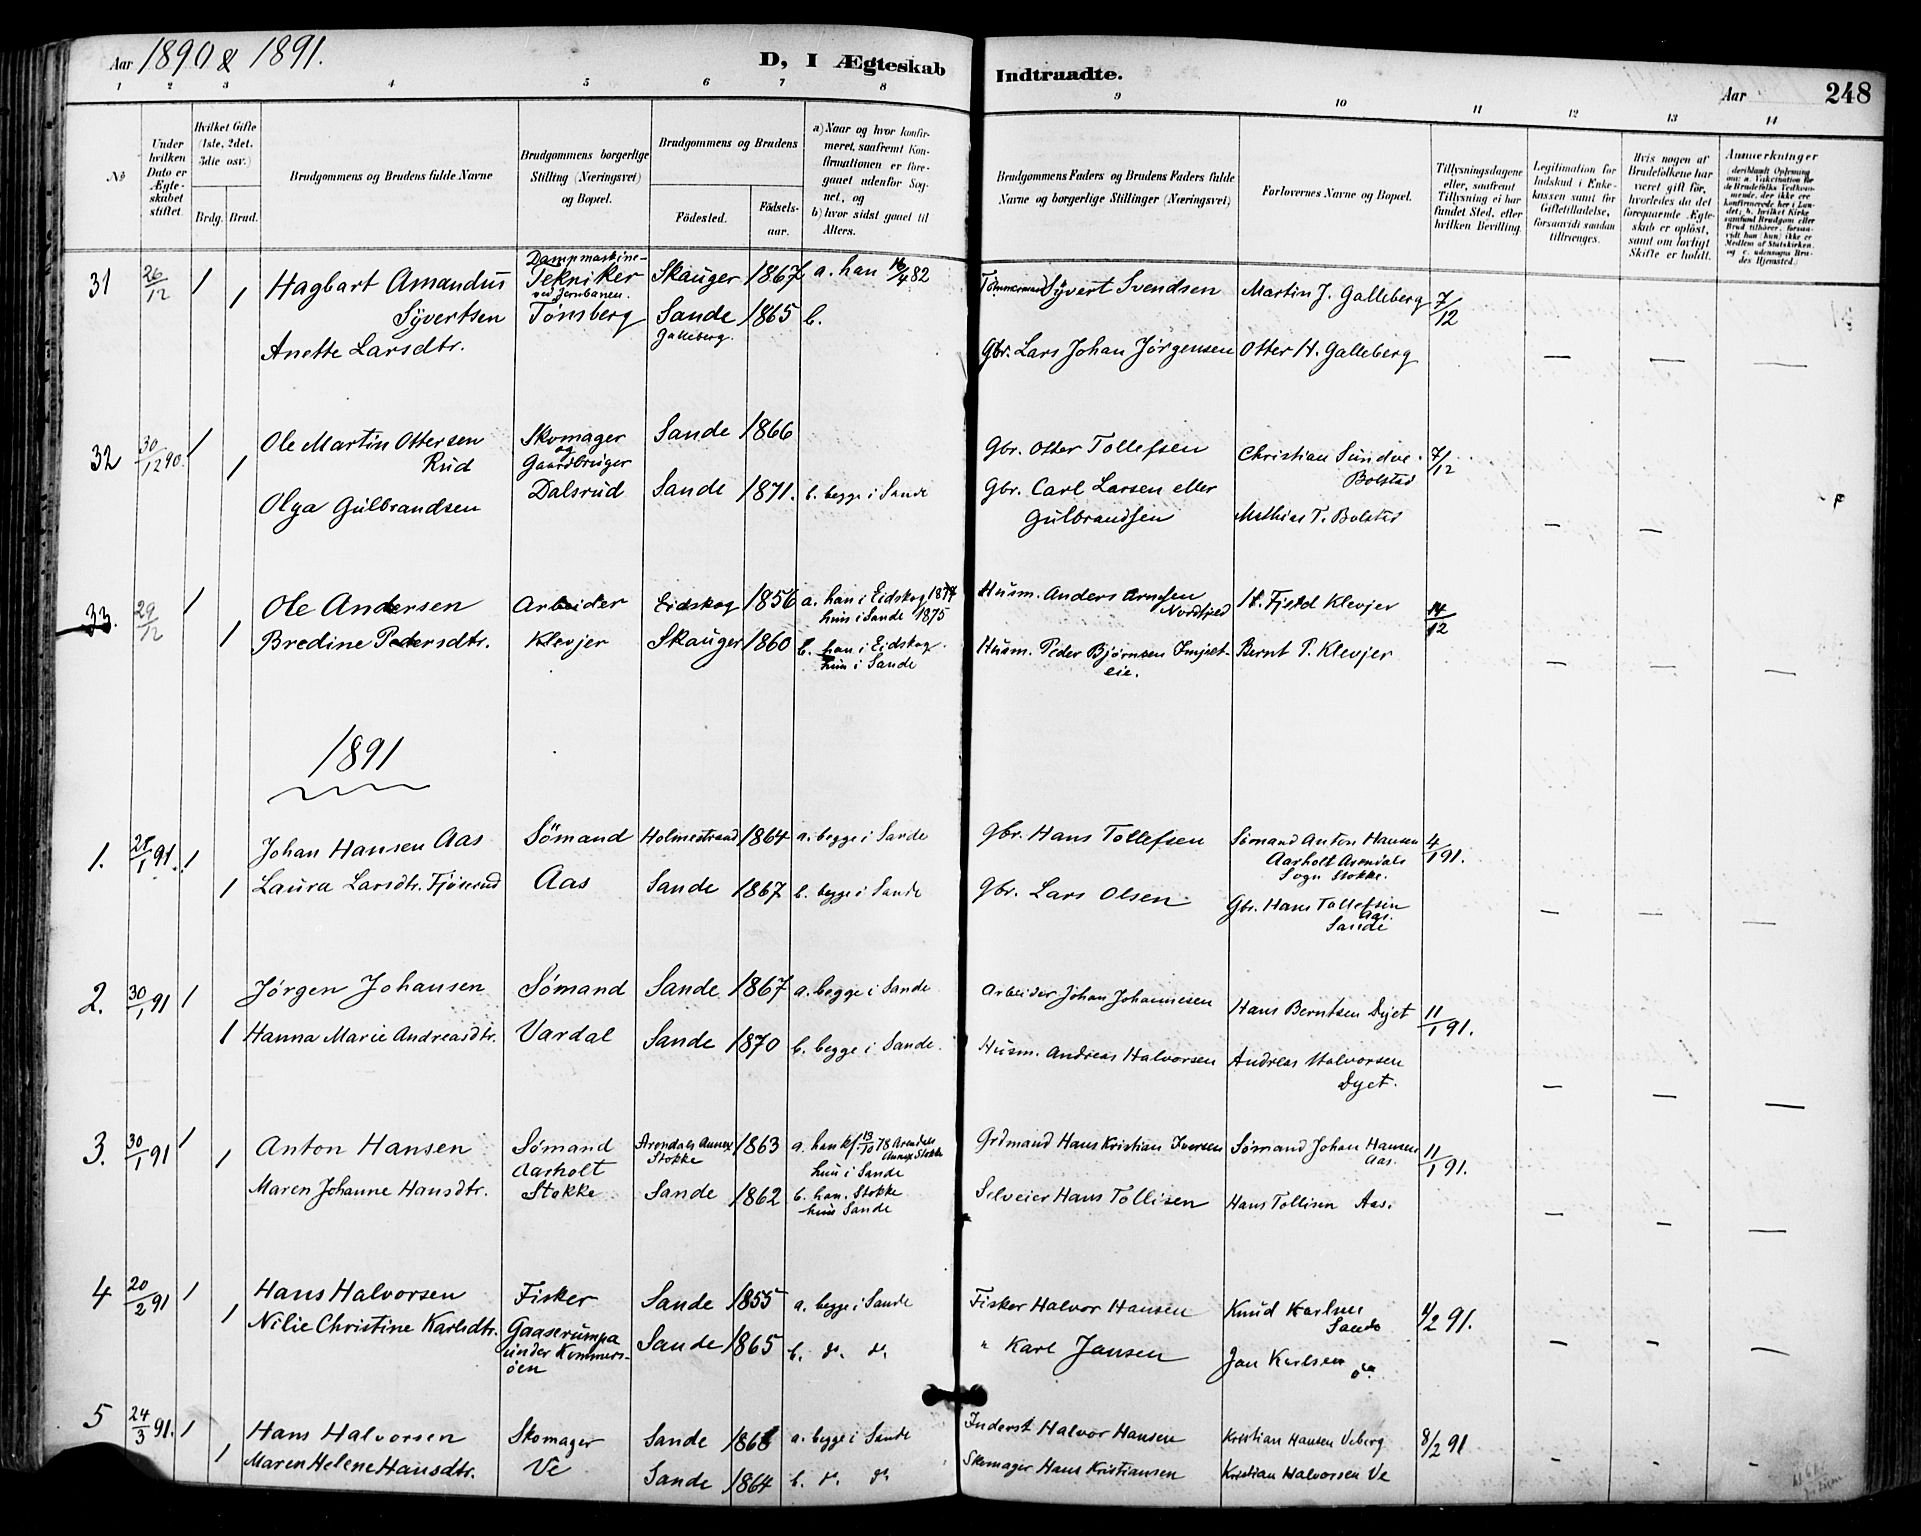 Aar 1890 & 1891.
D, I Ægteskab Indtraadte.
Aar 248
1 2 3 4 5 6 7 8 9 10 11 12 13 14
No
Under hvilken Dato er Ægteskabet stiftet.
Hvilket Gifte (1ste, 2det, 3die osv.)
Brdg. Brud.
Brudgommens og Brudens fulde Navne
Brudgommens borgerlige Stilling (Næringsvei) og Bopæl.
Brudgommens og Brudens
Födested. Födselsaar.
a) Naar og hvor konfirmeret, saafremt Konfirmationen er foregaaet udenfor Sognet, og
b) hvor sidst gaaet til Alters.
Brudgommens Faders og Brudens Faders fulde Navne og borgerlige Stillinger (Næringsvei)
Forlovernes Navne og Bopæl.
Tillysningsdagene eller, saafremt Tillysning ei har fundet Sted, efter hvilken Bevilling.
Legitimation for Indskud i Enkekassen samt for Giftetilladelse, forsaavidt saadan tiltrænges.
Hvis nogen af Brudefolkene har været gift før, hvorledes da det foregaaende Ægteskab er oplöst, samt om lovligt Skifte er holdt.
Anmerkninger
31 26/12 1 1 Hagbart Amandus Syvertsen
Anette Larsdtr.
Dampmaskine-
Tekniker
ved Jernbanen.
Tønsberg
Skauger 1867
Sande 1865
Galleberg.
a. han 16/4 82
b.
Tømmermand Syvert Svendsen
Gbr. Lars Johan Jørgensen
Martin J. Galleberg
Otter H. Galleberg
7/12
32 30/12 90. 1 1 Ole Martin Ottersen
Rud
Olga Gulbrandsen
Skomager
og
Gaardbruger
Dalsrud
Sande 1866
Sande 1871.
b. begge i Sande
Gbr. Otter Tollefsen
Gbr. Carl Larsen eller
Gulbrandsen
Christian Sundve
Bolstad
Mathias T. Bolstad
7/12
33. 29/12 1 1 Ole Andersen
Bredine Pedersdtr.
Arbeider
Klevjer
Eidskog 1856
Skauger 1860
a. han i Eidskog 1874
hun i Sande 1875
b. han i Eidskog
hun i Sande
Husm. Anders Arnesen
Husm. Peder Bjørnsen
eie.
H. Fjeld Klevjer
Bernt P. Klevjer
14/12
1891
1. 25/1 91. 1 1 Johan Hansen Aas
Laura Larsdtr. Fjöserud
Sömand
Aas
Holmestrand 1864
Sande 1867
a. begge i Sande
b. begge i Sande
Gbr. Hans Tollefsen
Gbr. Lars Olsen
Sömand Anton Hansen
Aarholt Arendals
Sogn Stokke.
Gbr. Hans Tollefsen
Aas.
Sande
4/1 91.
2. 30/1 91 1 1 Jørgen Johansen
Hanna Marie Andreasdtr.
Sømand
Vardal
Sande 1867
Sande 1870
a. begge i Sande
b. begge i Sande.
Arbeider Johan Johannesen
Husm. Andreas Halvorsen
Hans Berntsen Dyet
Andreas Halvorsen
Dyet.
11/1 91.
3. 30/1 91 1 1 Anton Hansen
Maren Johanne Hansdtr.
Sømand
Aarholt
Stokke
Arendals Annex
Stokke 1863
Sande 1862
a. han kf. 13/10 78 Arendals
Annex Stokke
hun i Sande
b. han. Stokke
hun Sande
Grdmand Hans Kristian Iversen
Selveier Hans Tollisen
Sømand Johan Hansen
Aas.
Hans Tollisen Aas.
11/1 91.
4 20/2 91 1 1 Hans Halvorsen
Nilie Christine Karlsdtr.
Fisker
Gaaserumpa
under Kommersöen
Sande 1855
Sande 1865
a. begge i Sande
b. do. do.
Fisker Halvor Hansen
" Karl Jansen
Knud Karlsen
Sande
Jan Karlsen do.
1/2 91.
5 24/3 91. 1 1 Hans Halvorsen
Maren Helene Hansdtr.
Skomager
Ve
Sande 1868
Sande 1864
a. begge i Sande
b. do. do.
Inderst Halvor Hansen
Skomager Hans Kristiansen
Kristian Hansen Veberg
Kristian Halvorsen Ve
8/2 91